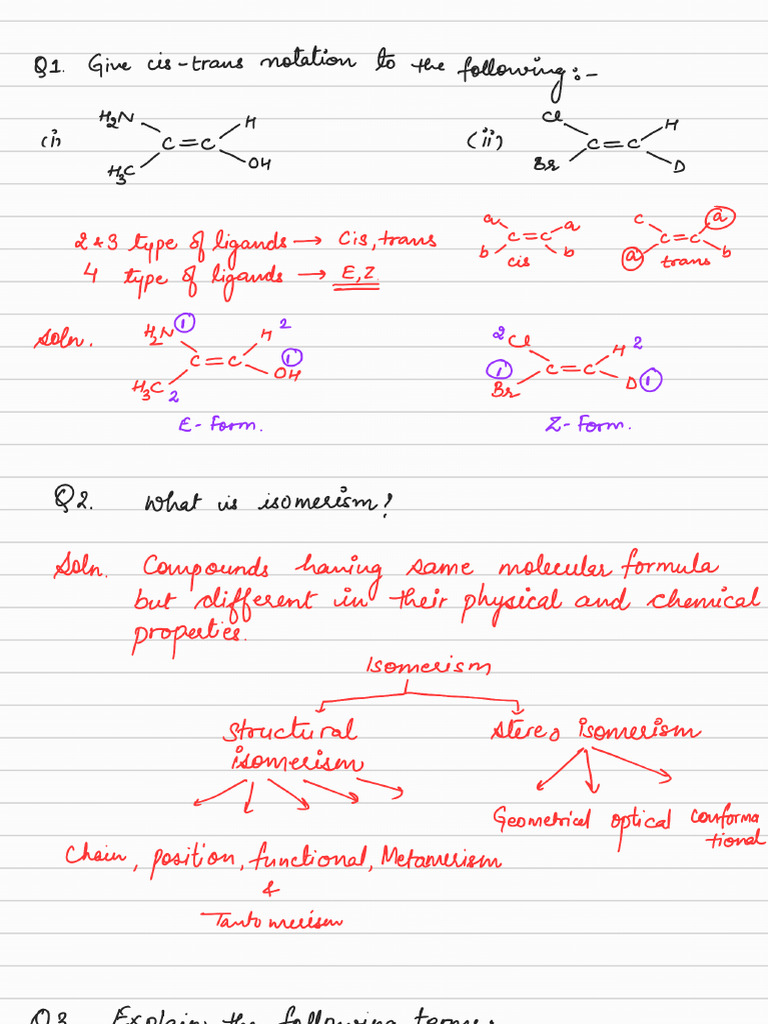 Q1. Give cis-trans notation to the following:-
(i) H2N H C=C H3C OH
(ii) Cl H C=C Br D
2 & 3 type of ligands → Cis, trans
4 type of ligands → E, Z.
a a C=C b b cis
c a C=C a b trans
Soln.
H2N 1 H 2 C=C 1 H3C 2 OH
2 Cl H 2 C=C 1 Br D 1
E-Form. Z-Form.
Q2. What is isomerism?
Soln. Compounds having same molecular formula
but different in their physical and chemical
properties.
Isomerism
Structural isomerism
stereo isomerism
Geometrical optical conformational
Chain, position, functional, Metamerism
&
Tautomerism
Q3. Explain the following terms: